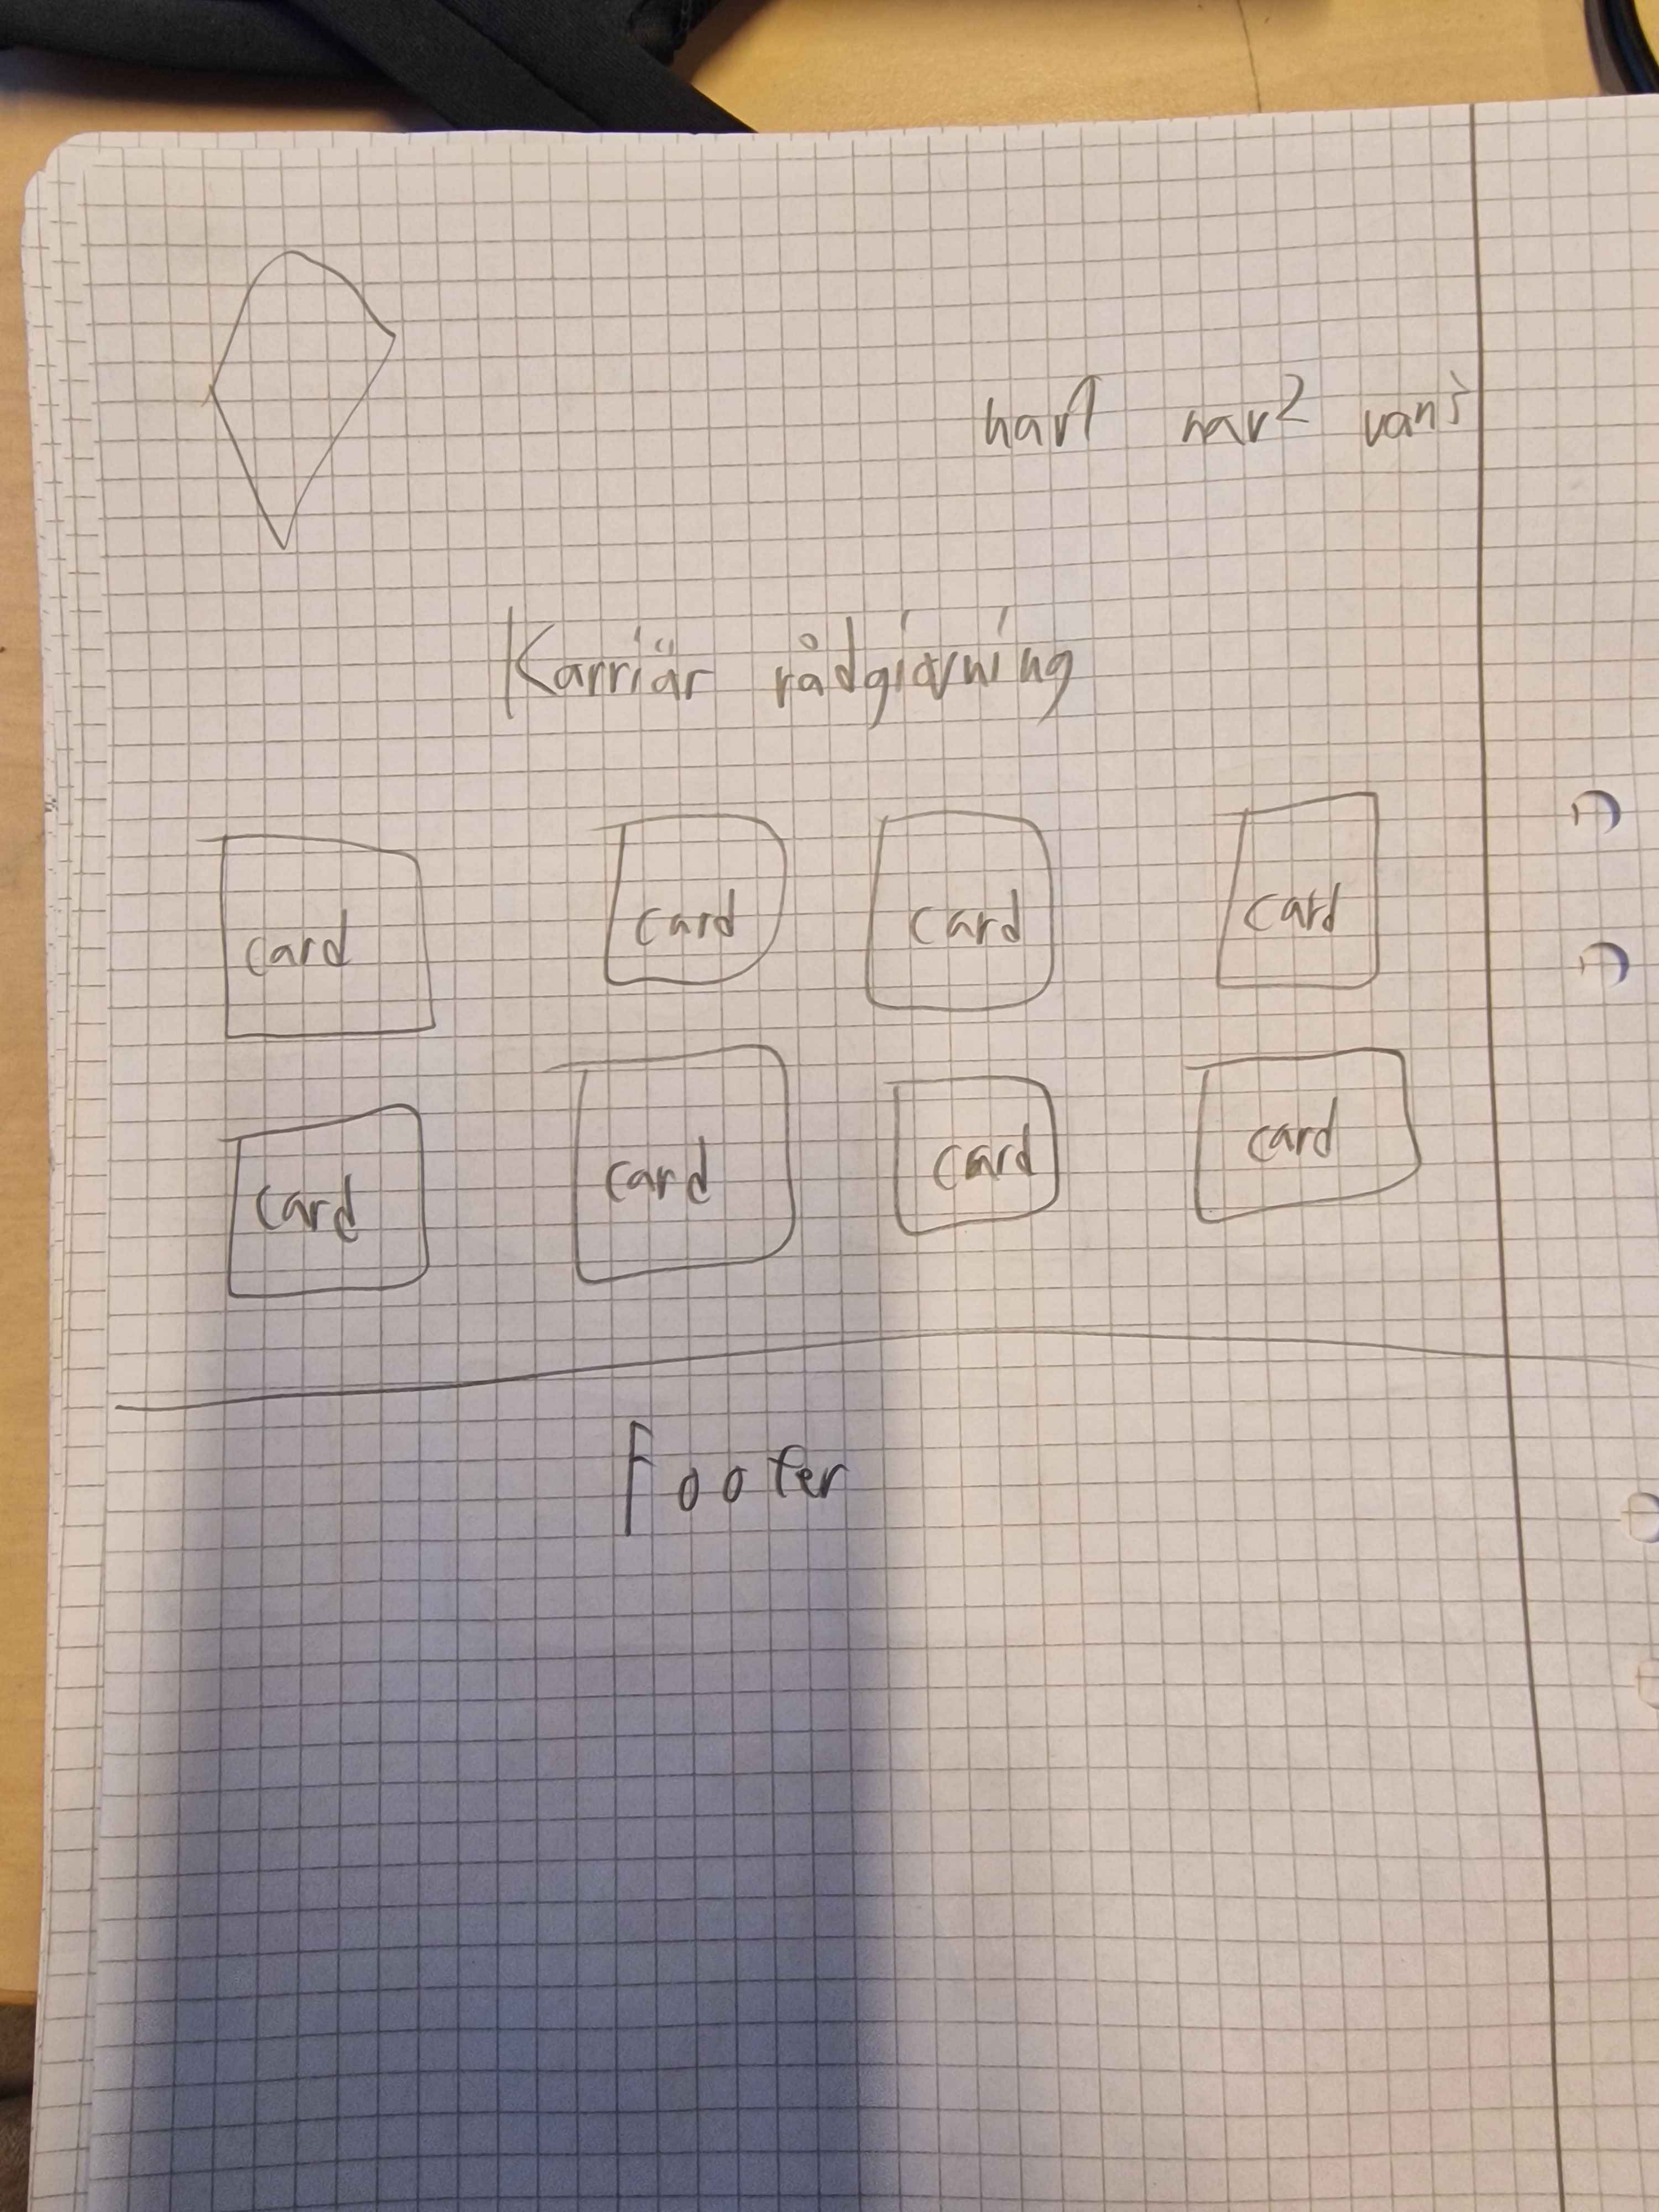 nav1 nav2 nav3
Karriär rådgivning
card card card card
card card card card
Footer